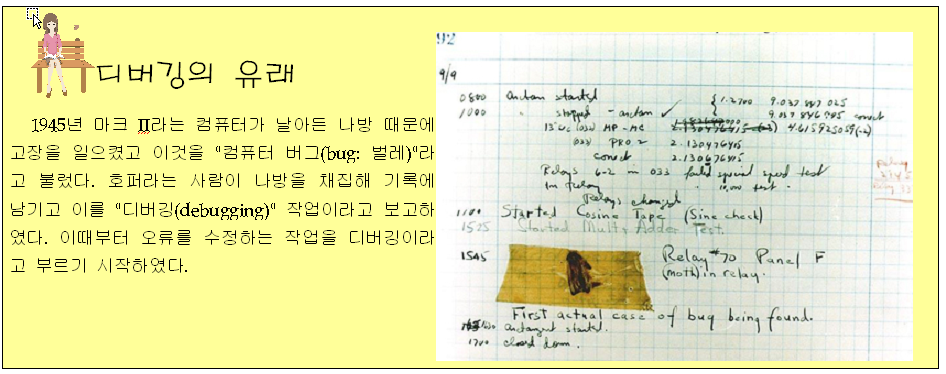 디버깅의 유래
1945년 마크 II라는 컴퓨터가 날아든 나방 때문에
고장을 일으켰고 이것을 "컴퓨터 버그(bug: 벌레)"라
고 불렀다. 호퍼라는 사람이 나방을 채집해 기록에
남기고 이를 "디버깅(debugging)" 작업이라고 보고하
였다. 이때부터 오류를 수정하는 작업을 디버깅이라
고 부르기 시작하였다.
92
9/9
0800 Antan started
1000 " stopped - antan ✓
{ 1.2700 9.037 847 025
9.037 846 995 correct
13"uc (032) MP - MC 4.615925059(-2)
(033) PRO 2 2.130476415
correct 2.130676415
Relays 6-2 in 033 failed special speed test
in relay " 10,000 test.
Relays changed
1100 Started Cosine Tape (Sine check)
1525 Started Mult+Adder Test.
1545 Relay #70 Panel F
(moth) in relay.
First actual case of bug being found.
antangent started.
1700 closed down.